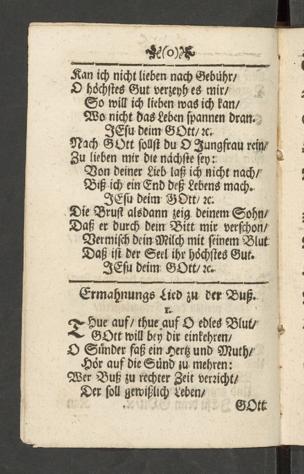 (0)
Kan ich nicht lieben nach Gebühr/
O höchstes Gut verzeyh es mir/
So will ich lieben was ich kan/
Wo nicht das Leben spannen dran.
JEsu deim GOtt/ ꝛc.
Nach GOtt sollst du O Jungfrau rein/
Zu lieben mir die nächste sey:
Von deiner Lieb laß ich nicht nach/
Biß ich ein End deß Lebens mach.
JEsu deim GOtt/ ꝛc.
Die Brust alsdann zeig deinem Sohn/
Daß er durch dein Bitt mir verschon/
Vermisch dein Milch mit seinem Blut
Daß ist der Seel ihr höchstes Gut.
JEsu deim GOtt/ ꝛc.
Ermahnungs Lied zu der Buß.
1.
THue auf/ thue auf O edles Blut/
GOtt will bey dir einkehren/
O Sünder faß ein Hertz und Muth/
Hör auf die Sünd zu mehren:
Wer Buß zu rechter Zeit verzicht/
Der soll gewißlich Leben/
GOtt